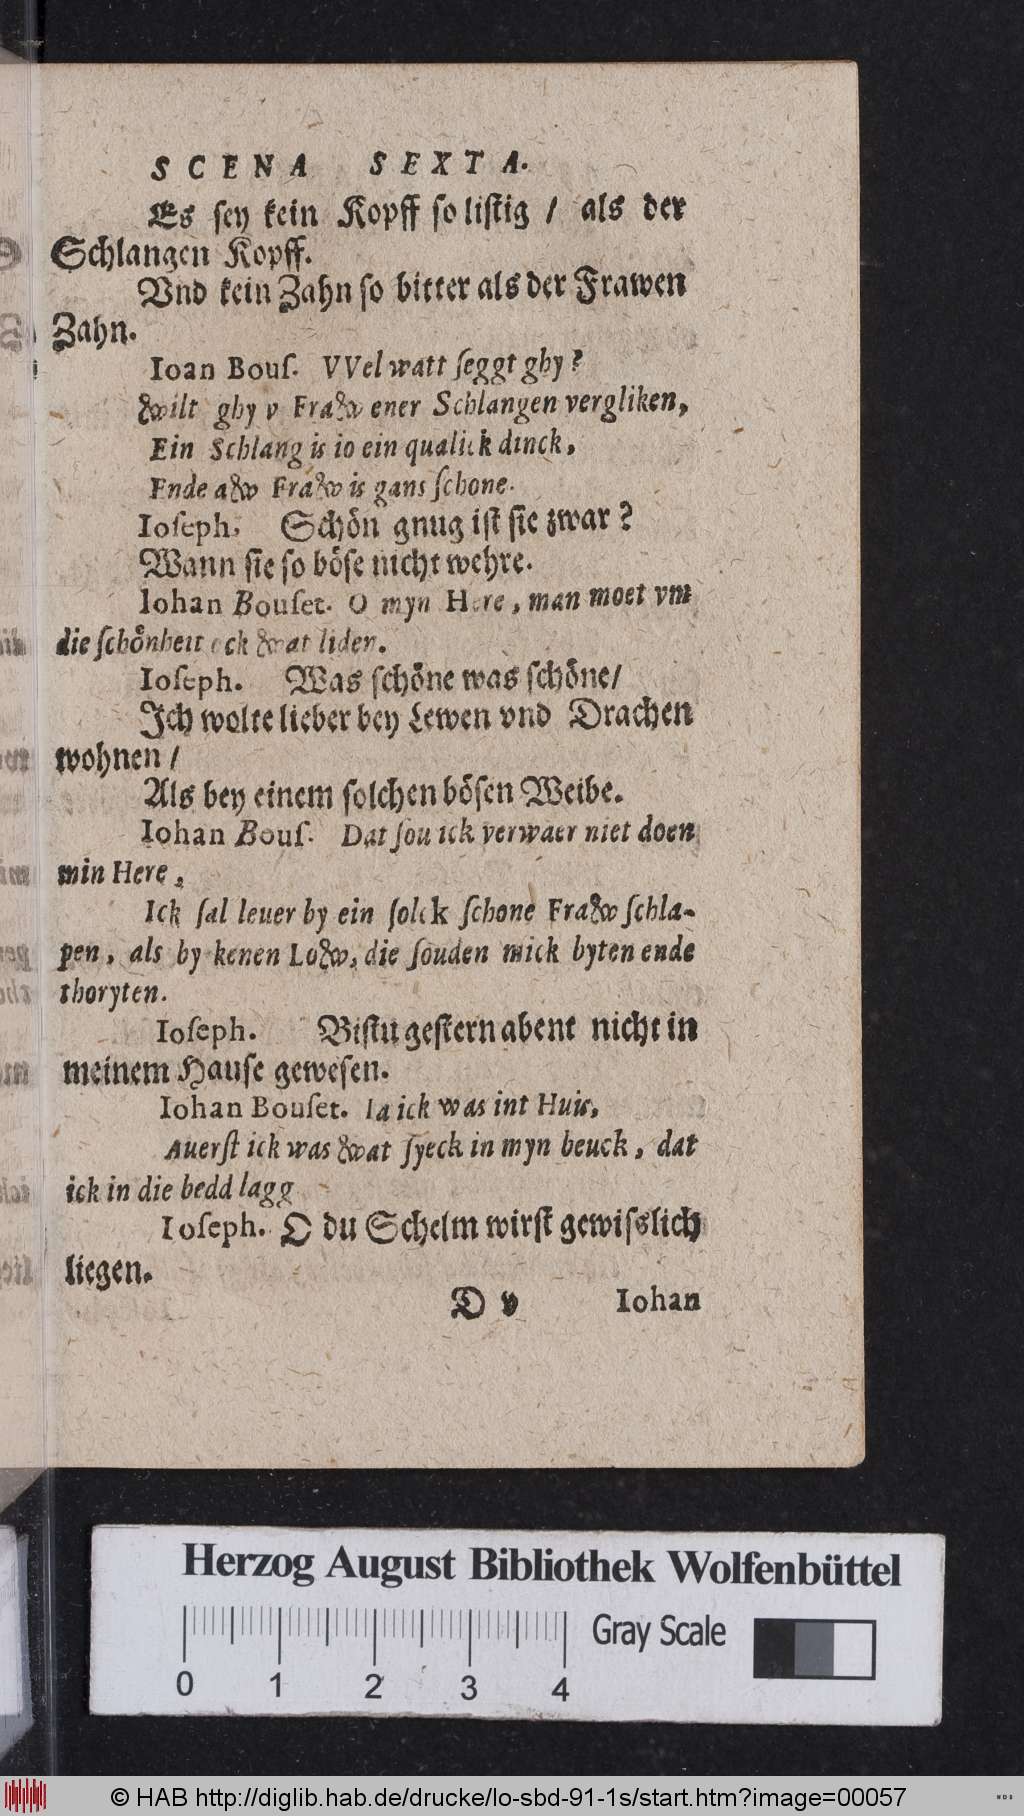 SCENA SEXTA.
Es sey kein Kopff so listig / als der
Schlangen Kopff.
Vnd kein Zahn so bitter als der Frawen
Zahn.
Ioan Bouſ. VVel watt ſeggt ghy?
wilt ghy v Fraw ener Schlangen vergliken,
Ein Schlang is io ein qualick dinck,
Ende aw Fraw is gans ſchone.
Ioſeph. Schön gnug iſt ſie zwar?
Wann ſie ſo böſe nicht wehre.
Iohan Bouſet. O myn Here, man moet vm
die ſchönheit ock wat liden.
Ioſeph. Was ſchöne was ſchöne/
Ich wolte lieber bey Lewen vnd Drachen
wohnen /
Als bey einem ſolchen böſen Weibe.
Iohan Bouſ. Dat ſou ick verwaer niet doen
min Here,
Ick ſal leuer by ein ſolck ſchone Fraw ſchla-
pen, als by kenen Low, die ſouden mick byten ende
thoryten.
Ioſeph. Biſtu geſtern abent nicht in
meinem Hauſe geweſen.
Iohan Bouſet. Ia ick was int Huis,
Auerſt ick was wat ſyeck in myn beuck, dat
ick in die bedd lagg
Ioſeph. O du Schelm wirſt gewiſslich
liegen.
D v Iohan
Herzog August Bibliothek Wolfenbüttel
Gray Scale
0 1 2 3 4
© HAB http://diglib.hab.de/drucke/lo-sbd-91-1s/start.htm?image=00057